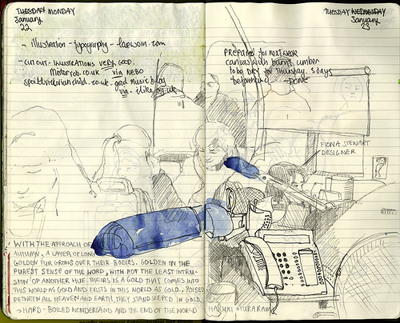 TUESDAY MONDAY
January
22
- illustration - typography - larswom.com
- cut out - ILLUSTRATIONS VERY GOOD.
Motorcob.co.uk via NEBO
spoiltvictorianchild.co.uk good music blog
TUESDAY WEDNESDAY
January
23
PREPARED for next week
canvas with burnt umber
to be DRY for Thursday, 3 days
beforehand - DONE
FIONA STEWART
DESIGNER
WITH THE APPROACH OF
AUTUMN, A LAYER OF LONG
GOLDEN FUR GROWS OVER THEIR BODIES. GOLDEN IN THE
PUREST SENSE OF THE WORD, WITH NOT THE LEAST INTRU-
SION OF ANOTHER HUE. THEIRS IS A GOLD THAT COMES INTO
THIS WORLD AS GOLD AND EXISTS IN THIS WORLD AS GOLD. POISED
BETWEEN ALL HEAVEN AND EARTH, THEY STAND STEEPED IN GOLD.
→ HARD-BOILED WONDERLAND AND THE END OF THE WORLD
HARUKI MURAKAMI